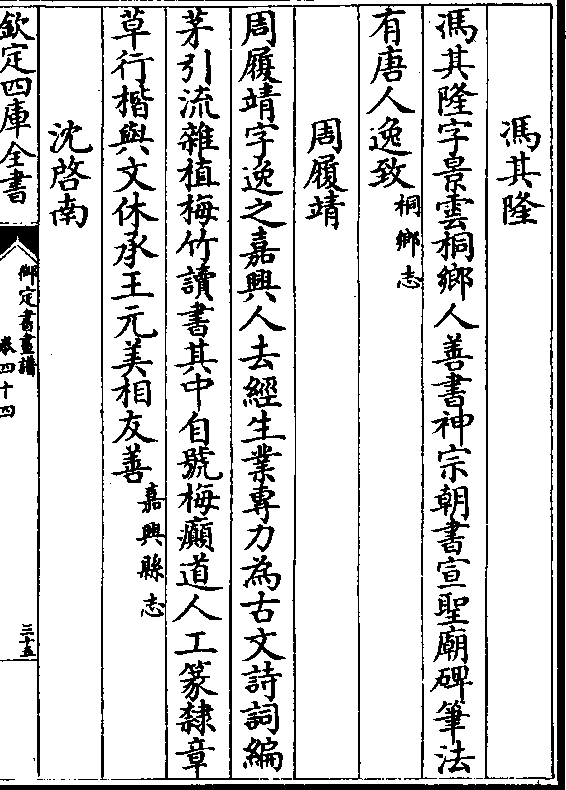 馮其隆
馮其隆字景雲桐鄉人善書神宗朝書宣聖廟碑筆法
有唐人逸致桐鄉志
周履靖
周履靖字逸之嘉興人去經生業專力為古文詩詞編
茅引流雜植梅竹讀書其中自號梅癲道人工篆隸章
草行楷與文休承王元美相友善嘉興縣志
沈啓南
欽定四庫全書
御定書畫譜
卷四十四
三十五